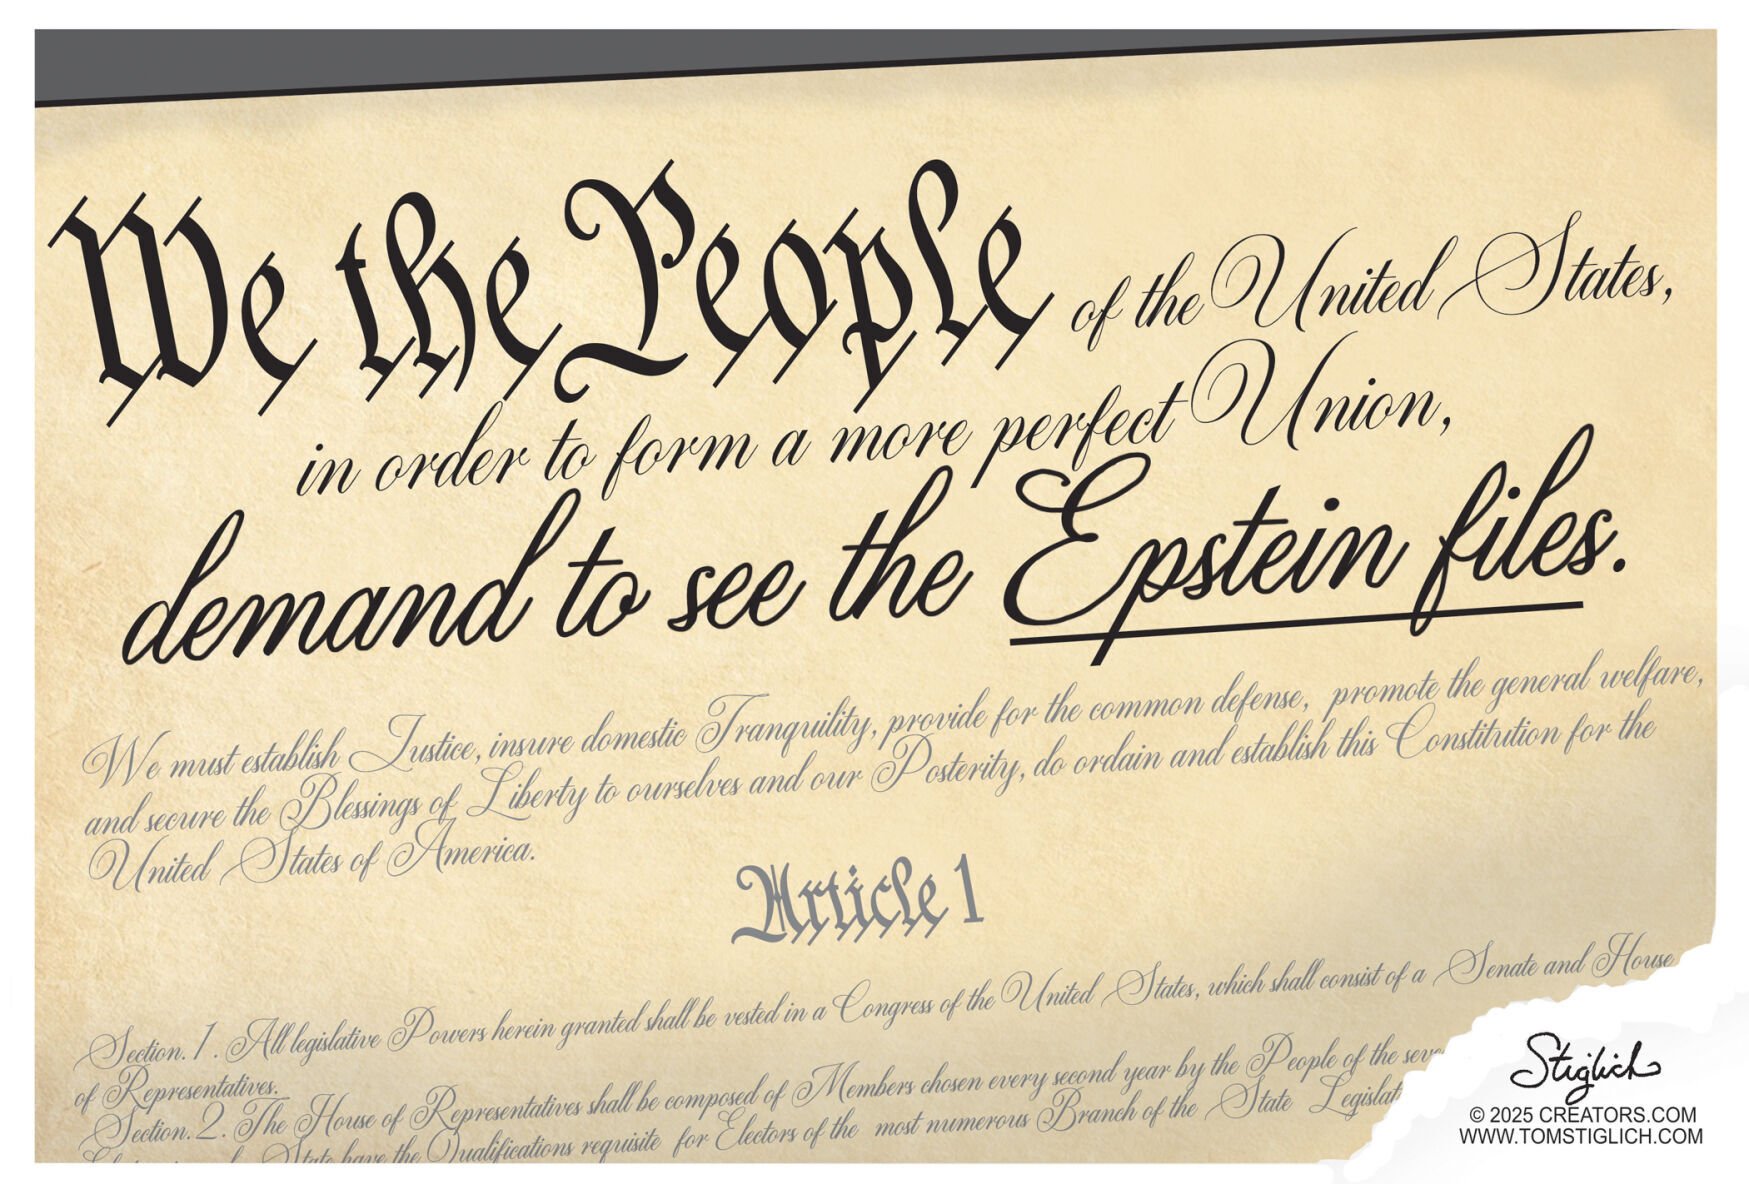 We the People of the United States,
in order to form a more perfect Union,
demand to see the Epstein files.
We must establish Justice, insure domestic Tranquility, provide for the common defense, promote the general welfare,
and secure the Blessings of Liberty to ourselves and our Posterity, do ordain and establish this Constitution for the
United States of America.
Article 1
Section. 1. All legislative Powers herein granted shall be vested in a Congress of the United States, which shall consist of a Senate and House
of Representatives.
Section. 2. The House of Representatives shall be composed of Members chosen every second year by the People of the
State have the Qualifications requisite for Electors of the most numerous Branch of the State
Stiglich
© 2025 CREATORS.COM
WWW.TOMSTIGLICH.COM